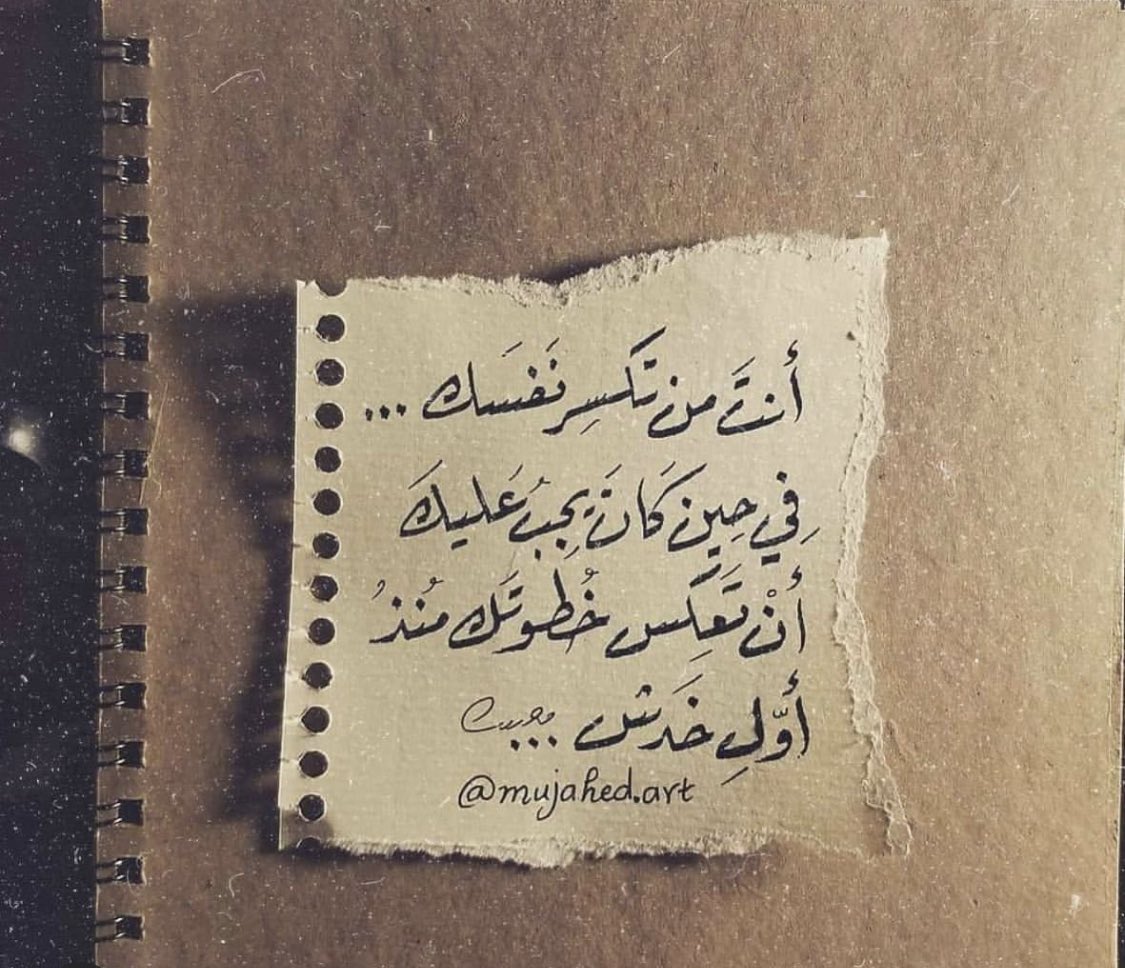 أنتَ من تكسِر نَفسَك ...
فِي حِين كَانَ يَجِبُ عَليكَ
أنْ تَعكِس خُطوتَك مُنذُ
أوّلِ خَدش ...
@mujahed.art